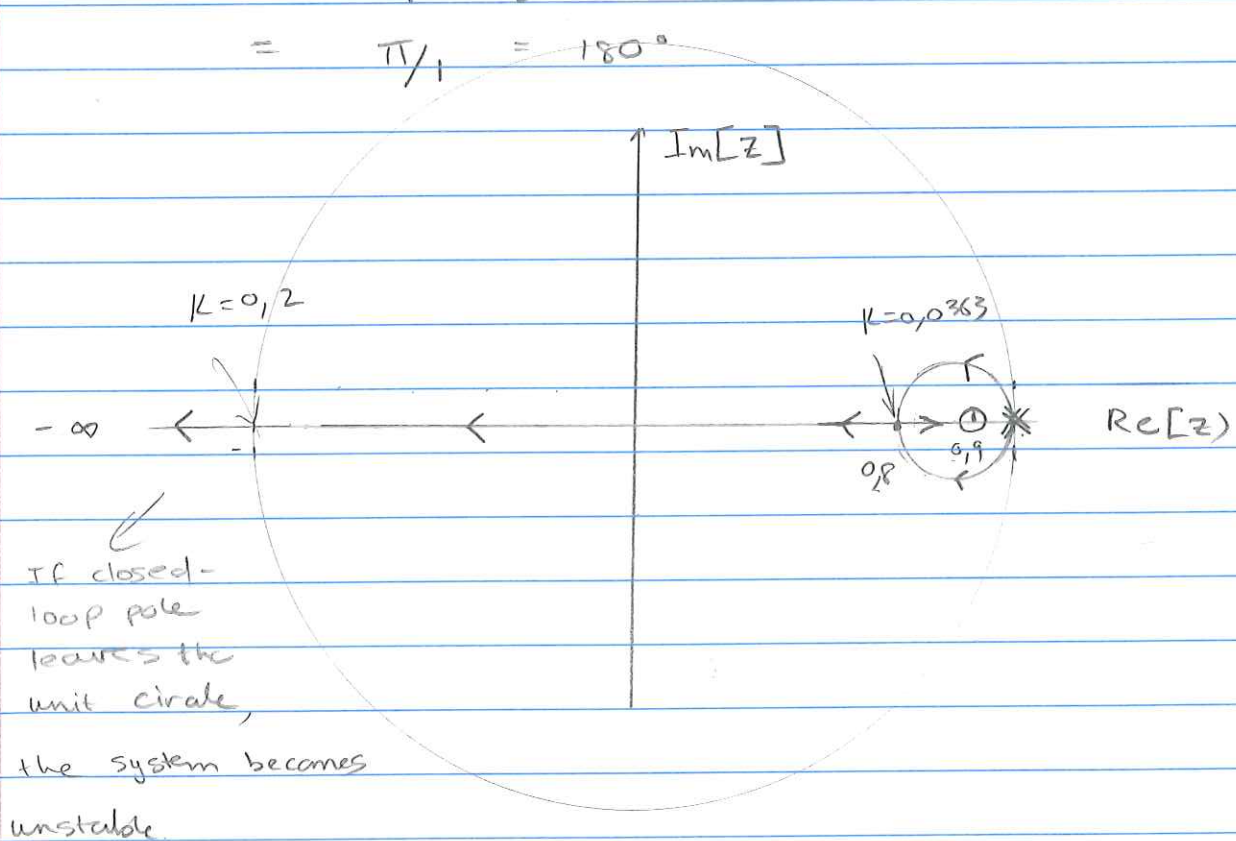 = π/1 = 180°
Im[z]
K=0,2
K=0,0363
- ∞
Re[z)
0,9
0,8
-
If closed-
loop pole
leaves the
unit cirale,
the system becomes
unstable.